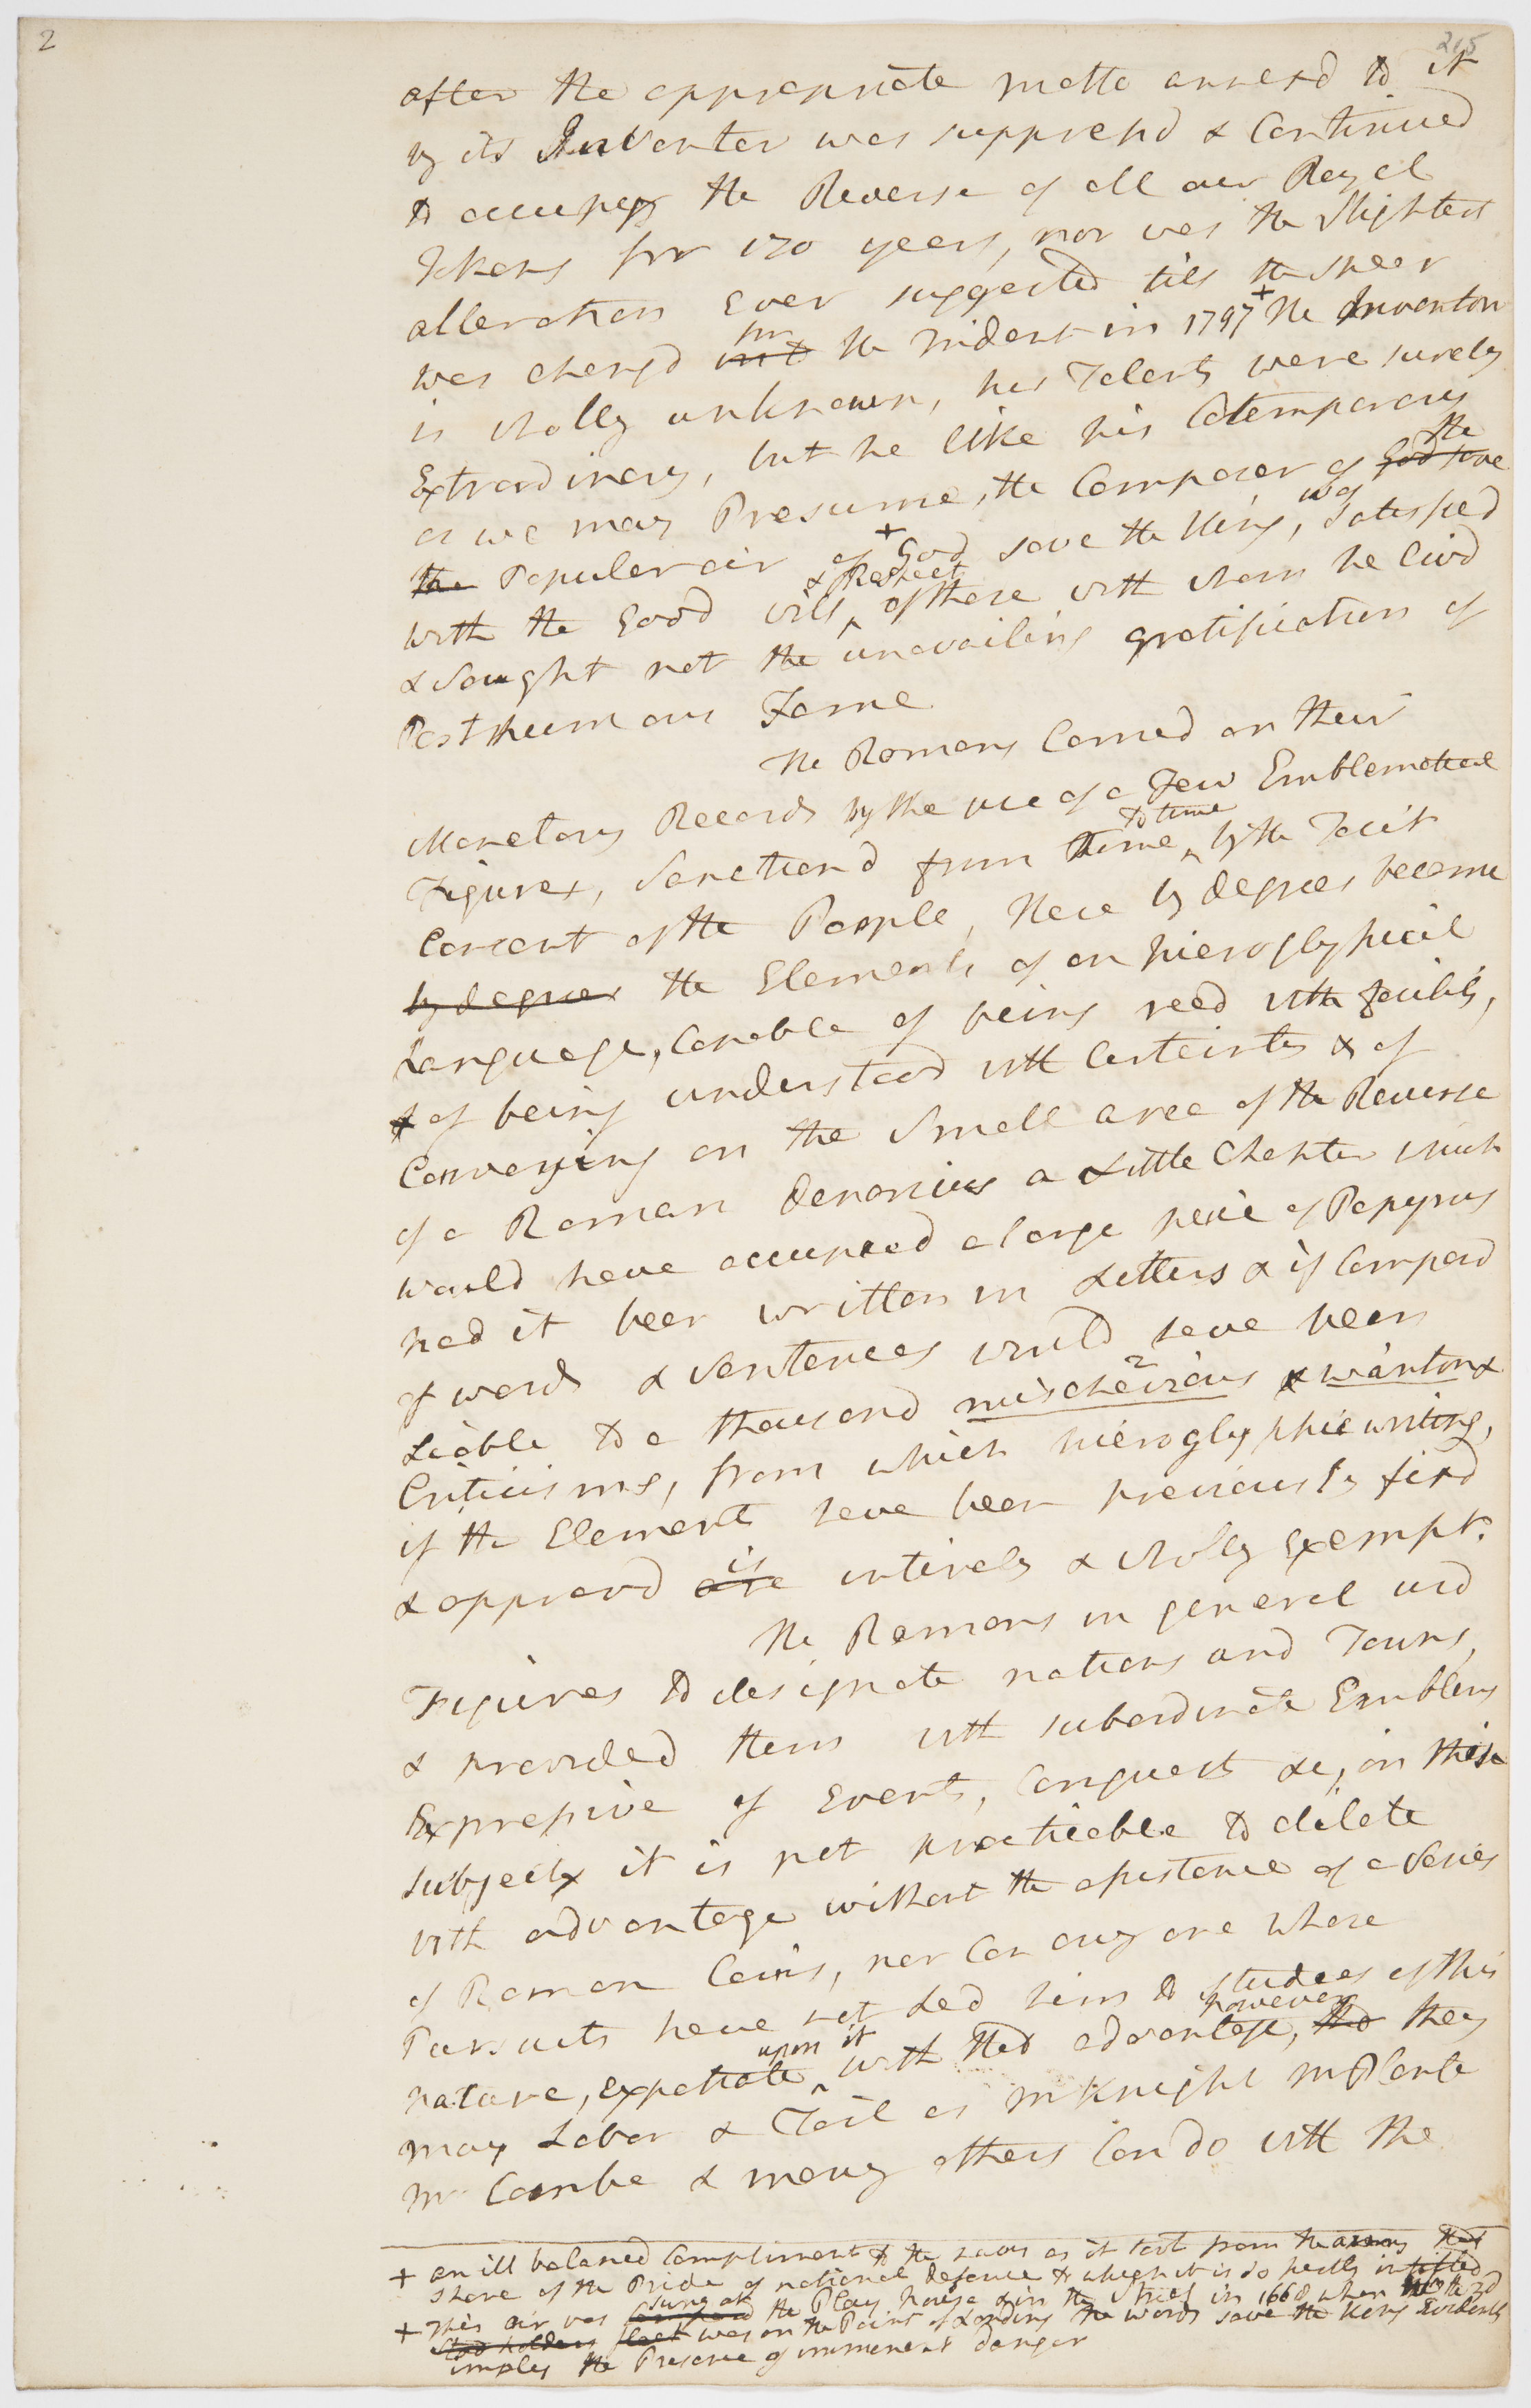 2
215
after the appropriate motto annexd to it
by its Inventor was suppressd & Continued
to occupy the Reverse of all our Royal
Tokens for 120 years, nor was the Slightest
alteration Ever suggested till the spear
was changd into for the Trident in 1797 + The Inventor
is wholly unknown, his Talents were surely
Extraordinary, but he like his Cotemporary
as we may Presume, the Composer of God save the
the Popular air of + God save the King, was Satisfied
with the Good will & Respect of those with whom he livd
& Sought not the unavailing gratification of
Posthumous Fame
The Romans Carried on their
Monetary Records by the use of a Few Emblematical
Figures, Sanctiond from time to time by the Tacit
Consent of the People, These by degrees became
by degrees the Elements of an hieroglyphical
Language, Capable of being read with facility,
& of being understood with Certainty & of
Conveying on the Small area of the Reverse
of a Roman denarius a Little Chapter which
would have occupied a large peice of Papyrus
had it been written in Letters & if Composd
of words & Sentences would have been
Liable to a thousand mischeivious 2 & wanton &
Criticisms, from which hieroglyphic writing,
if the Elements have been previously fixd
& approvd are is intirely & wholy Exempt.
The Romans in general usd
Figures to designate nations and Towns,
& provided them with subordinate Emblems
Expressive of Events, Conquests &c, on these
subjects it is not practicable to dilate
with advantage without the assistance of a Series
of Roman Coins, nor Can any one whose
Pursuits have not Led him to studies of this
nature, expatiate upon it with that advantage, tho however they
may Labor & Toil as Mr Knight Mr Planta
Mr Combe & many others Can do with the
+ an ill balanced Compliment to the navy as it took from the army that
share of the Pride of national defence to which it is so justly intitled
+ This air was sung at the Play house & in the Street in 1668 when the
Stad holders fleet was on the Point of Landing the words save the King Evidently
implies the Presence of imminent danger